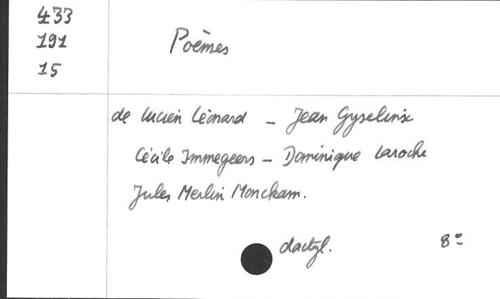 433
191
15
Poèmes
de Lucien Léonard - Jean Gyselinx
Cécile Immegeers - Dominique Laroche
Jules Merlin Monckam.
dactyl. 8°